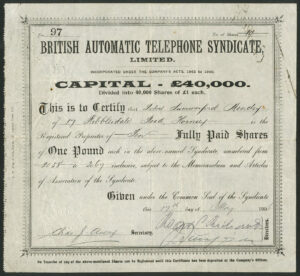 No. 97
No. of Shares
BRITISH AUTOMATIC TELEPHONE SYNDICATE,
LIMITED.
INCORPORATED UNDER THE COMPANIES ACTS, 1862 to 1900.
CAPITAL - £40,000.
Divided into 40,000 Shares of £1 each.
This is to Certify that
of 89 Ribblesdale Road Hornsey is
the Registered Proprietor of Fully Paid Shares
of One Pound each in the above-named Syndicate, numbered from
2058 to inclusive, subject to the Memorandum and Articles
of Association of the Syndicate.
Given under the Common Seal of the Syndicate
this day of May 190
Secretary.
Directors.
No Transfer of any of the above-mentioned Shares can be Registered until this Certificate has been deposited at the Company's Offices.